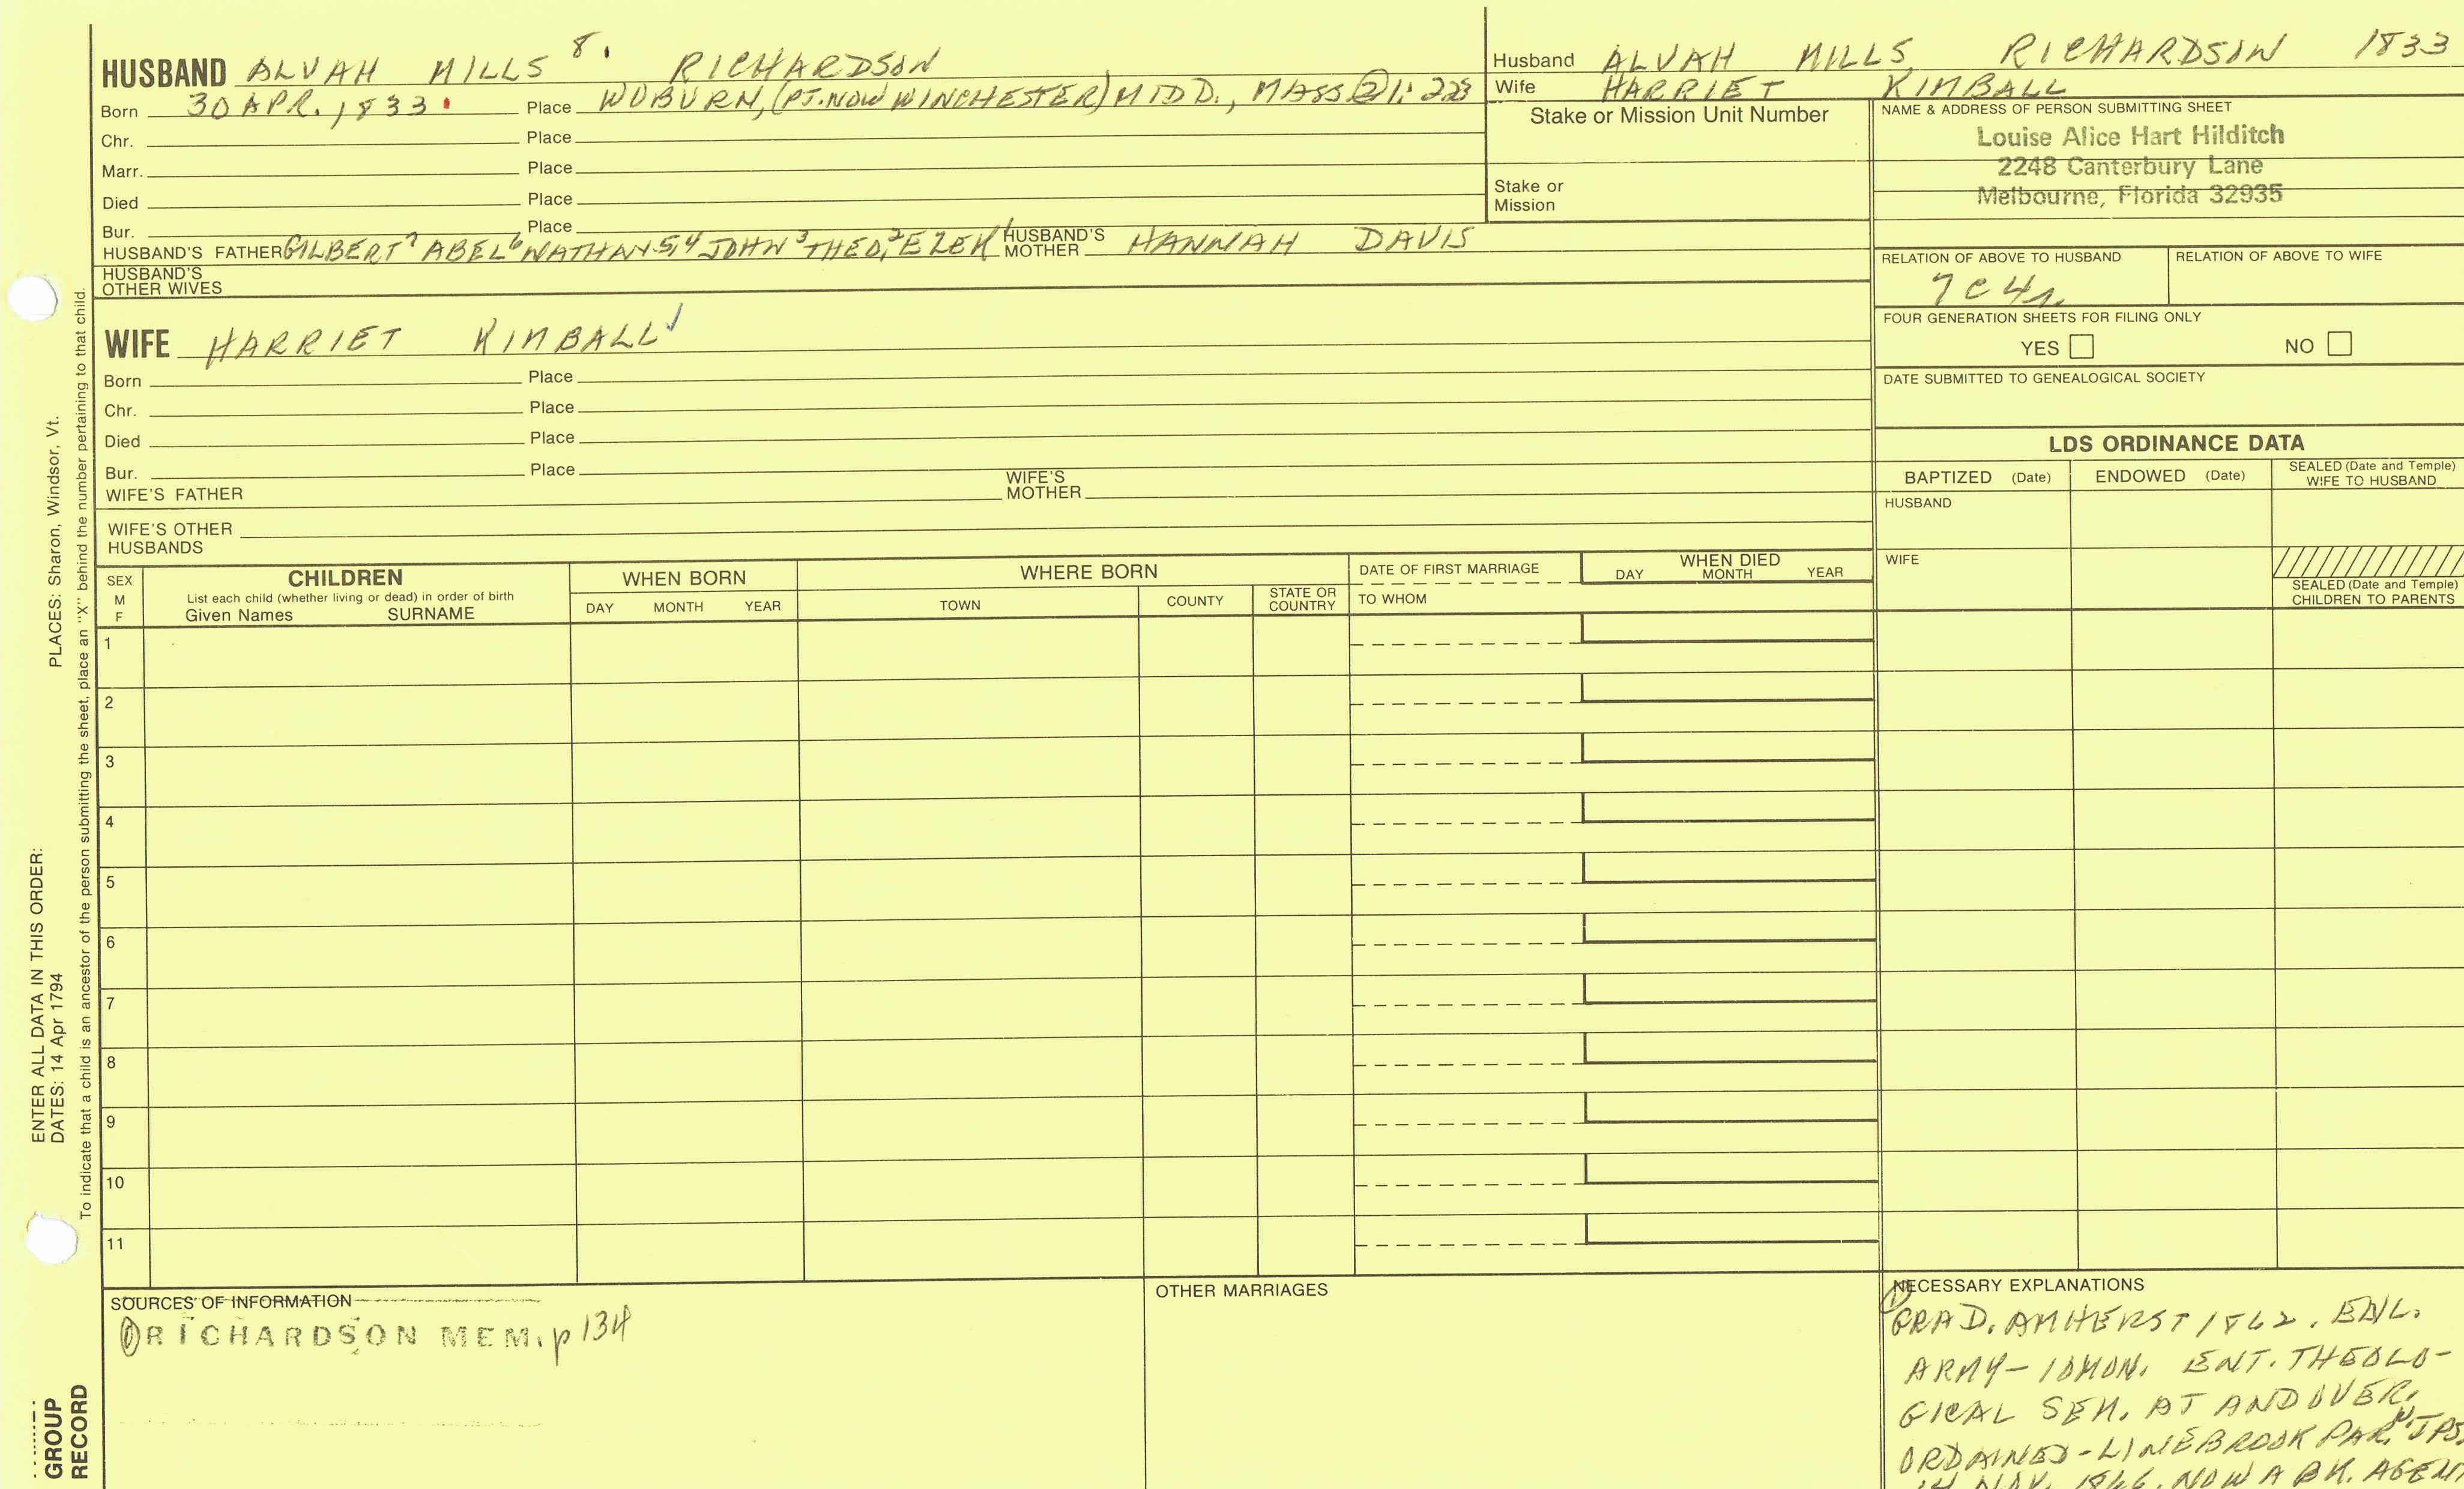 HUSBAND ALVAH MILLS 8. RICHARDSON
Born 30 APR. 1833. Place WOBURN, (PT. NOW WINCHESTER) MIDD., MASS 21: 223
Chr. Place
Marr. Place
Died Place
Bur. Place
HUSBAND'S FATHER GILBERT7 ABEL6 NATHAN 5,4 JOHN3 THEO,2 EZEK1 HUSBAND'S MOTHER HANNAH DAVIS
HUSBAND'S OTHER WIVES
WIFE HARRIET KIMBALL ✓
Born Place
Chr. Place
Died Place
Bur. Place
WIFE'S FATHER WIFE'S MOTHER
WIFE'S OTHER HUSBANDS
Husband ALVAH MILLS RICHARDSON 1833
Wife HARRIET KIMBALL
Stake or Mission Unit Number
Stake or Mission
NAME & ADDRESS OF PERSON SUBMITTING SHEET
Louise Alice Hart Hilditch
2248 Canterbury Lane
Melbourne, Florida 32935
RELATION OF ABOVE TO HUSBAND RELATION OF ABOVE TO WIFE
7C4r.
FOUR GENERATION SHEETS FOR FILING ONLY
YES NO
DATE SUBMITTED TO GENEALOGICAL SOCIETY
LDS ORDINANCE DATA
BAPTIZED (Date) ENDOWED (Date) SEALED (Date and Temple) WIFE TO HUSBAND
HUSBAND
WIFE
SEALED (Date and Temple) CHILDREN TO PARENTS
SEX M F
CHILDREN
List each child (whether living or dead) in order of birth
Given Names SURNAME
WHEN BORN
DAY MONTH YEAR
WHERE BORN
TOWN COUNTY STATE OR COUNTRY
DATE OF FIRST MARRIAGE
TO WHOM
WHEN DIED
DAY MONTH YEAR
1
2
3
4
5
6
7
8
9
10
11
SOURCES OF INFORMATION
① RICHARDSON MEM. p 134
OTHER MARRIAGES
NECESSARY EXPLANATIONS
① GRAD. AMHERST 1862. ENL.
ARMY - 10 MON. ENT. THEOLO-
GICAL SEM. AT ANDOVER.
ORDAINED - LINEBROOK PAR.
14 NOV. 1866. NOW A BK. AGENT
PLACES: Sharon, Windsor, Vt.
ENTER ALL DATA IN THIS ORDER:
DATES: 14 Apr 1794
To indicate that a child is an ancestor of the person submitting the sheet, place an "X" behind the number pertaining to that child.
GROUP
RECORD